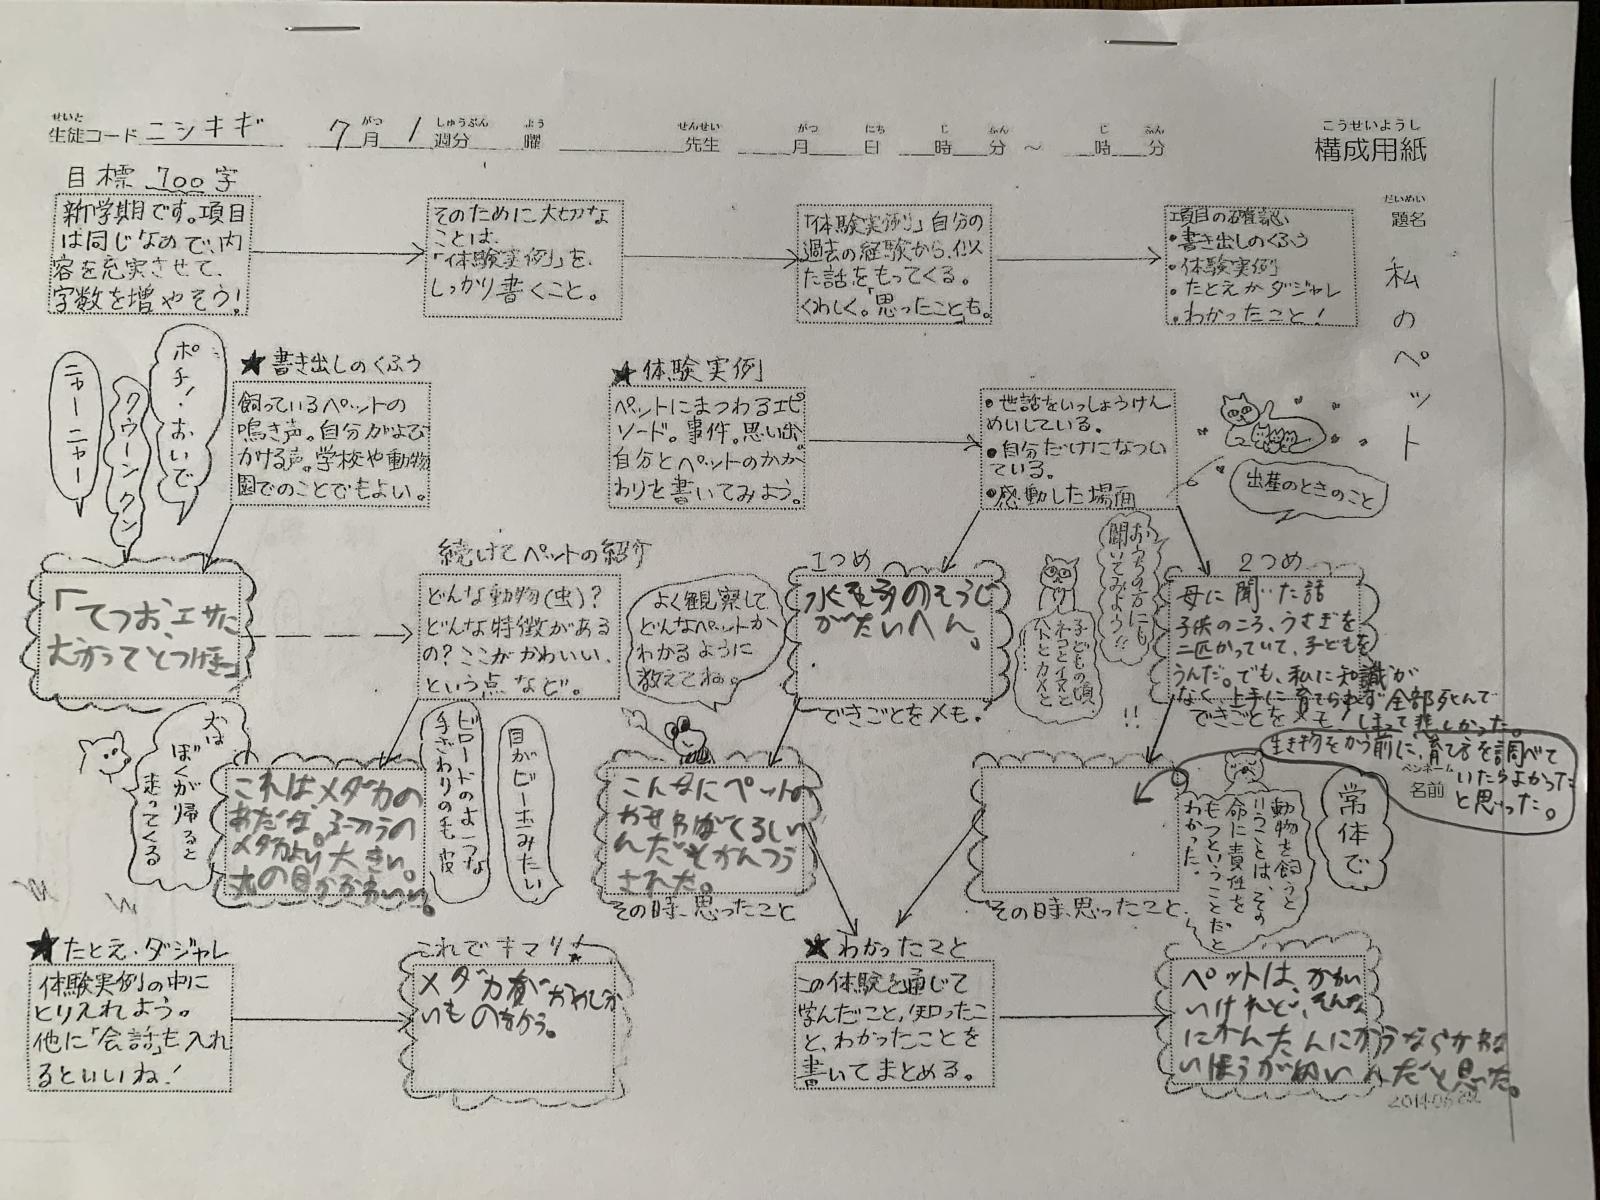 せいと
生徒コード ニシキギ 7月 1 週分 曜 先生 月 日 時 分 ～ 時 分
がつ しゅうぶん よう せんせい がつ にち じ ふん じ ふん
こうせいようし
構成用紙
だいめい
題名
私のペット
目標 700字
新学期です。項目
は同じなので、内
容を充実させて、
字数を増やそう!
そのために大切な
ことは、
「体験実例」を、
しっかり書くこと。
「体験実例」自分の
過去の経験から、似
た話をもってくる。
くわしく。「思ったことも。
項目の確認
・書き出しのくふう
・体験実例
・たとえかダジャレ
・わかったこと!
ポチ!おいで
クウーンクン
ニャーニャー
★書き出しのくふう
飼っているペットの
鳴き声。自分がよび
かける声。学校や動物
園でのことでもよい。
★体験実例
ペットにまつわるエピ
ソード。事件。思い出。
自分とペットのかか
わりを書いてみよう。
・世話をいっしょうけん
めいしている。
・自分だけになつい
ている。
・感動した場面
出産のときのこと
「てつお、エサに
むかってとつげき」
続けてペットの紹介
どんな動物(虫)?
どんな特徴がある
の?ここがかわいい、
という点など。
よく観察して
どんなペットか
わかるように
教えてね。
1つめ
水そうのそうじ
がたいへん。
できごとをメモ。
おうちの方にも
聞いてみよう!!
子どもの頃、
ネコとイヌと
ハトとカメと
……!!
2つめ
母に聞いた話
子供のころ、うさぎを
二匹かっていて、子どもを
うんだ。でも、私に知識が
なく、上手に育てられず全部死んで
しまって悲しかった。
できごとをメモ
生き物をかう前に、育て方を調べて
いたらよかった
と思った。
ペンネーム
名前
犬は
ぼくが帰ると
走ってくる
これは、メダカの
あだな。ふつうの
メダカより大きい。
丸の目がかわいい。
ビロードのような
手ざわりの毛皮
目がビー玉みたい
こんなにペットの
おせわはくるしい
んだとかんつう
された。
その時、思ったこと
その時、思ったこと
動物を飼うと
いうことは、その
命に責任を
もつということだと
わかった。
常体で
★たとえ・ダジャレ
体験実例の中に
とりいれよう。
他に「会話」も入れ
るといいね!
これでキマリ!
メダカが
いものを
★わかったこと
この体験を通じて
学んだこと、知ったこ
と、わかったことを
書いてまとめる。
ペットは、かわい
いけれど、そんな
にかんたんにかうならかわな
いほうがいいんだと思った。